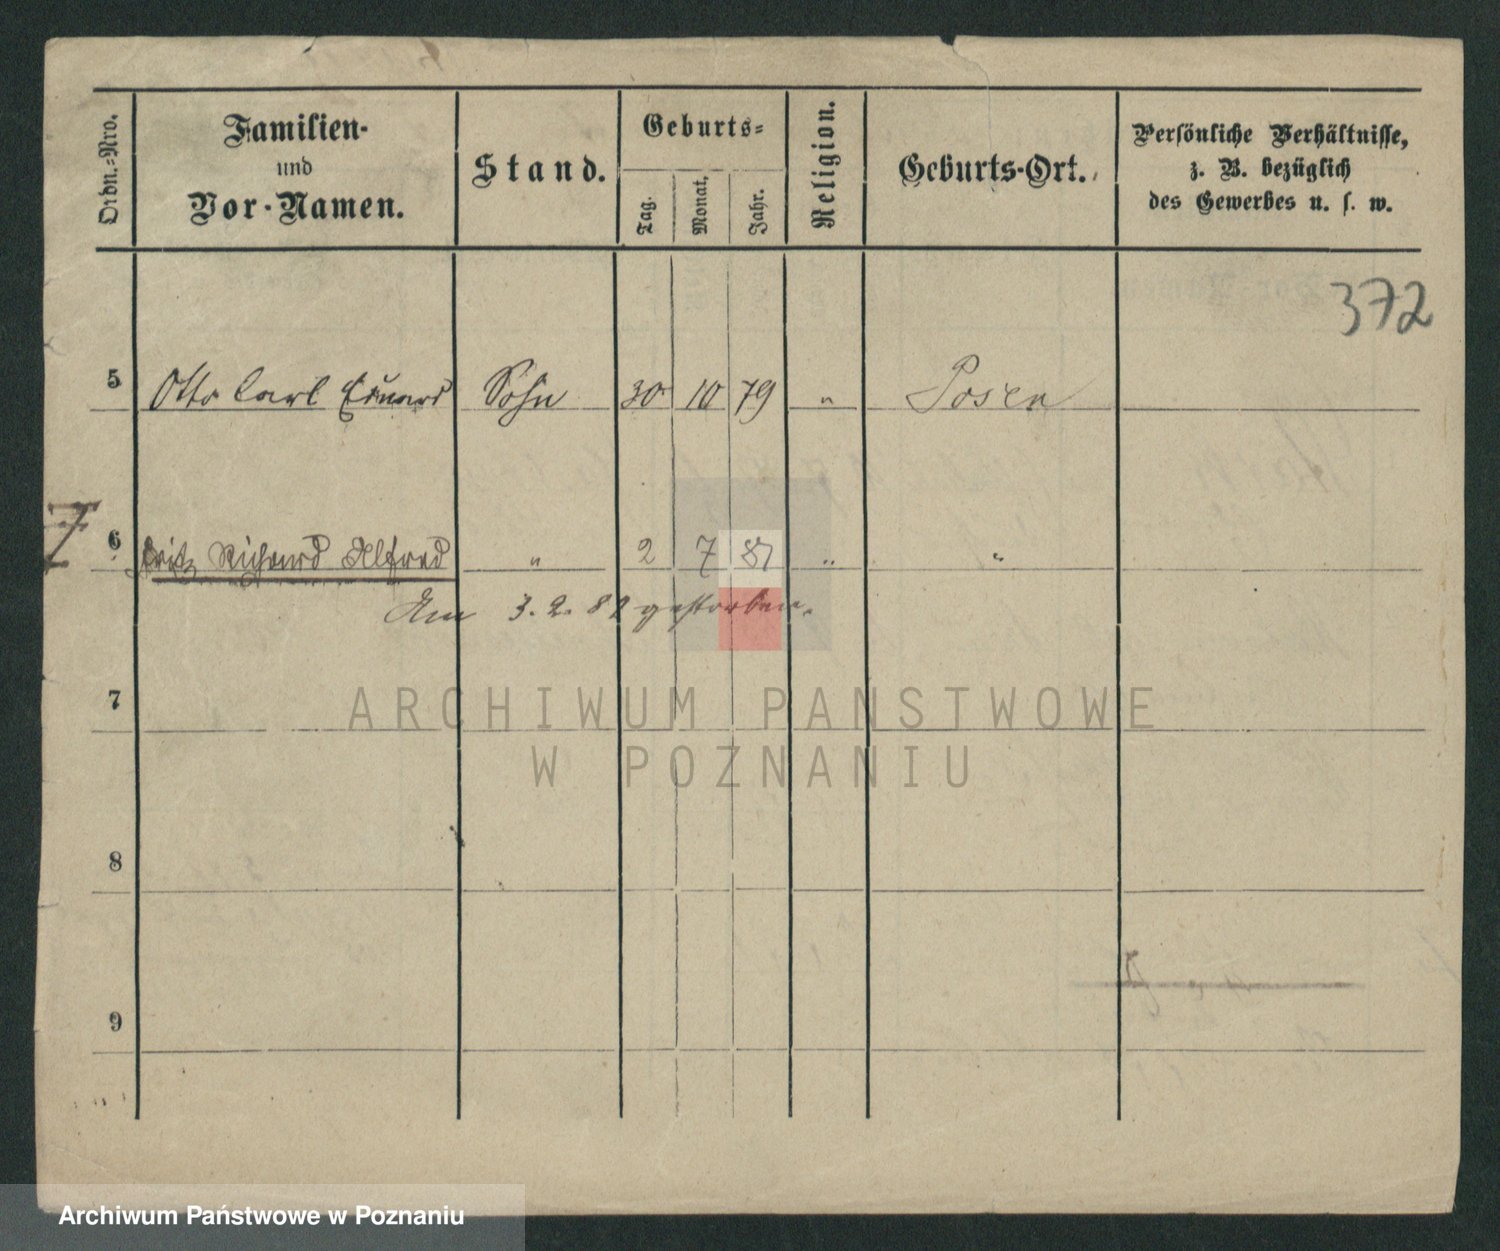 Ordn.-Nro.
Familien-
und
Vor-Namen.
Stand.
Geburts-
Tag.
Monat.
Jahr.
Religion.
Geburts-Ort.
Persönliche Verhältnisse,
z. B. bezüglich
des Gewerbes u. s. w.
372
5 Otto Carl Eduard Sohn 30 10 79 " Posen
6 Fritz Richard Alfred " 2 7 81 " "
Am 3. 2. 82 gestorben.
7
ARCHIWUM PAŃSTWOWE
W POZNANIU
8
9
Archiwum Państwowe w Poznaniu